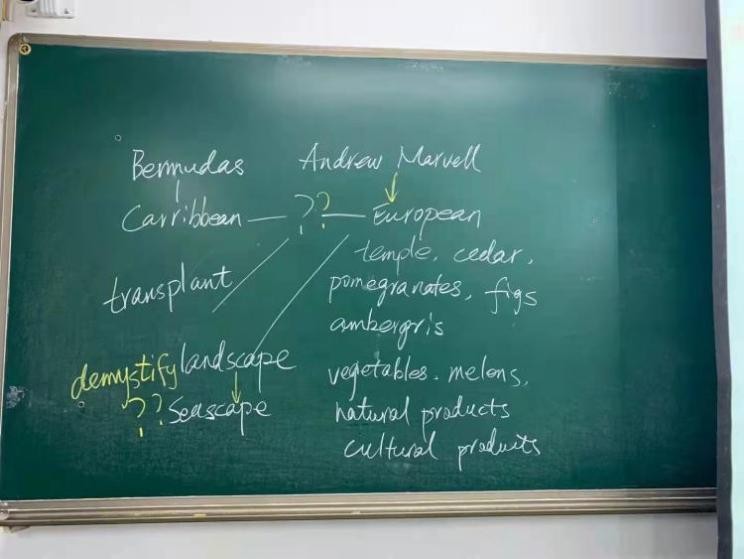 Bermudas Andrew Marvell
Carribbean — ?? — European
temple, cedar,
transplant
pomegranates, figs
ambergris
demystify landscape
vegetables. melons,
?? Seascape
natural products
cultural products